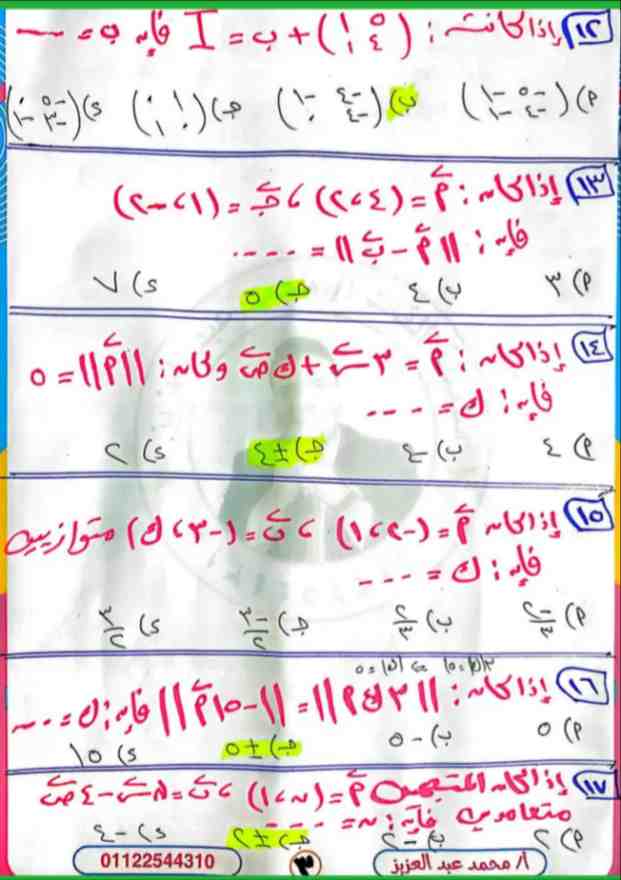 ١٢ إذا كانت : (٥ ٠ / ٤ ١) + ب = I فإن ب = ---
أ) (-٥ -١ / -٤ -١) ب) (-٤ -١ / -٤ ٠) جـ) (١ ٠ / ٠ ١) د) (-٥ ٠ / -٣ -١)
١٣ إذا كان : أ = (٤، ٢) ، ب = (١، -٢)
فإن : ||أ - ب|| = ----
أ) ٣ ب) ٤ جـ) ٥ د) ٧
١٤ إذا كان : أ = ٣ س + ك ص وكان : ||أ|| = ٥
فإن : ك = ----
أ) ٤ ب) -٤ جـ) ±٤ د) ٢
١٥ إذا كان أ = (-٢، ١) ، ب = (-٣، ك) متوازيين
فإن : ك = ----
أ) -٢/٣ ب) ٢/٣ جـ) -٣/٢ د) ٣/٢
١٦ إذا كان : ||٣ ك أ|| = ||-١٥ أ|| فإن : ك = ---
أ) ٥ ب) -٥ جـ) ±٥ د) ١٥
١٧ إذا كان المتجهين أ = (ن، ١) ، ب = ن س - ٤ ص
متعامدين فإن : ن = ----
أ) ٢ ب) -٢ جـ) ±٢ د) -٤
01122544310
٣
أ/ محمد عبد العزيز